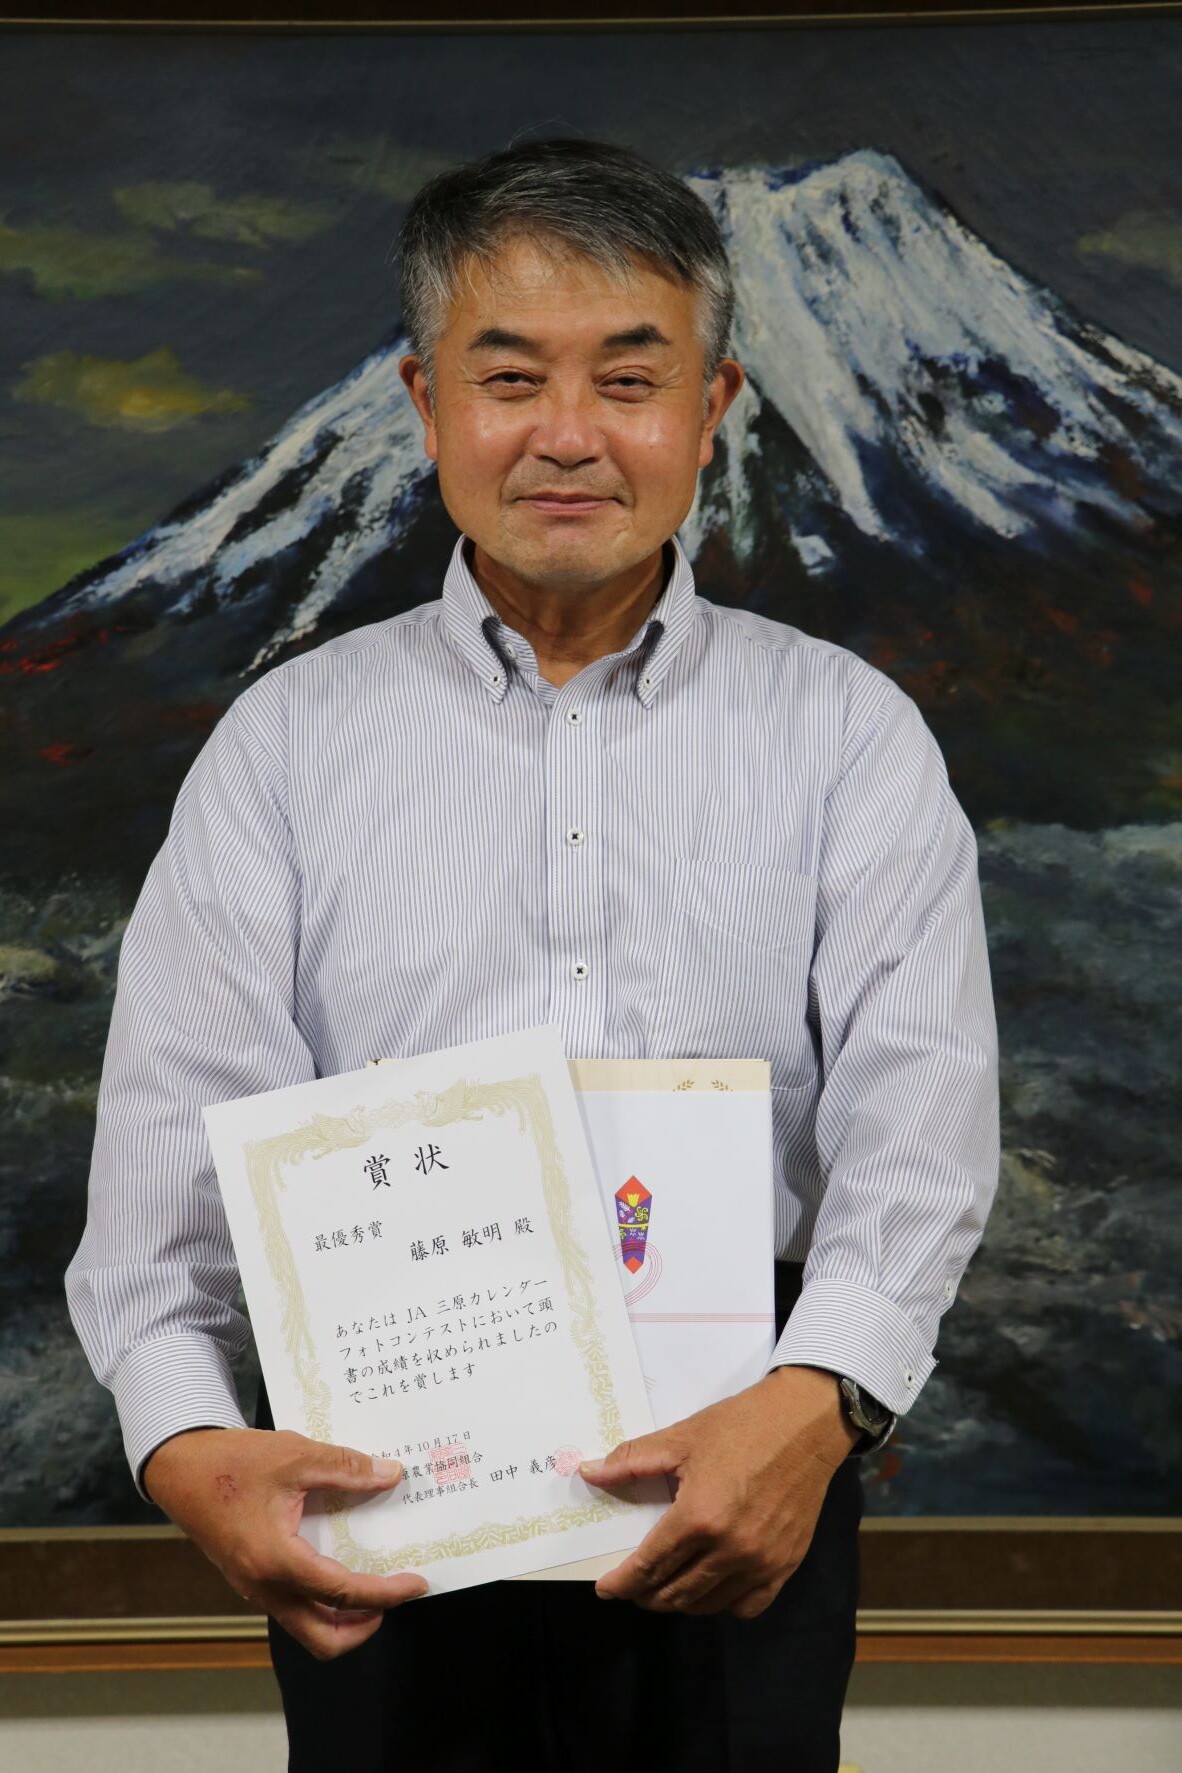 賞状
最優秀賞 藤原 敏明 殿
あなたは JA 三原カレンダー
フォトコンテストにおいて頭
書の成績を収められましたの
でこれを賞します
令和4年10月17日
原農業協同組合
代表理事組合長 田中 義彦